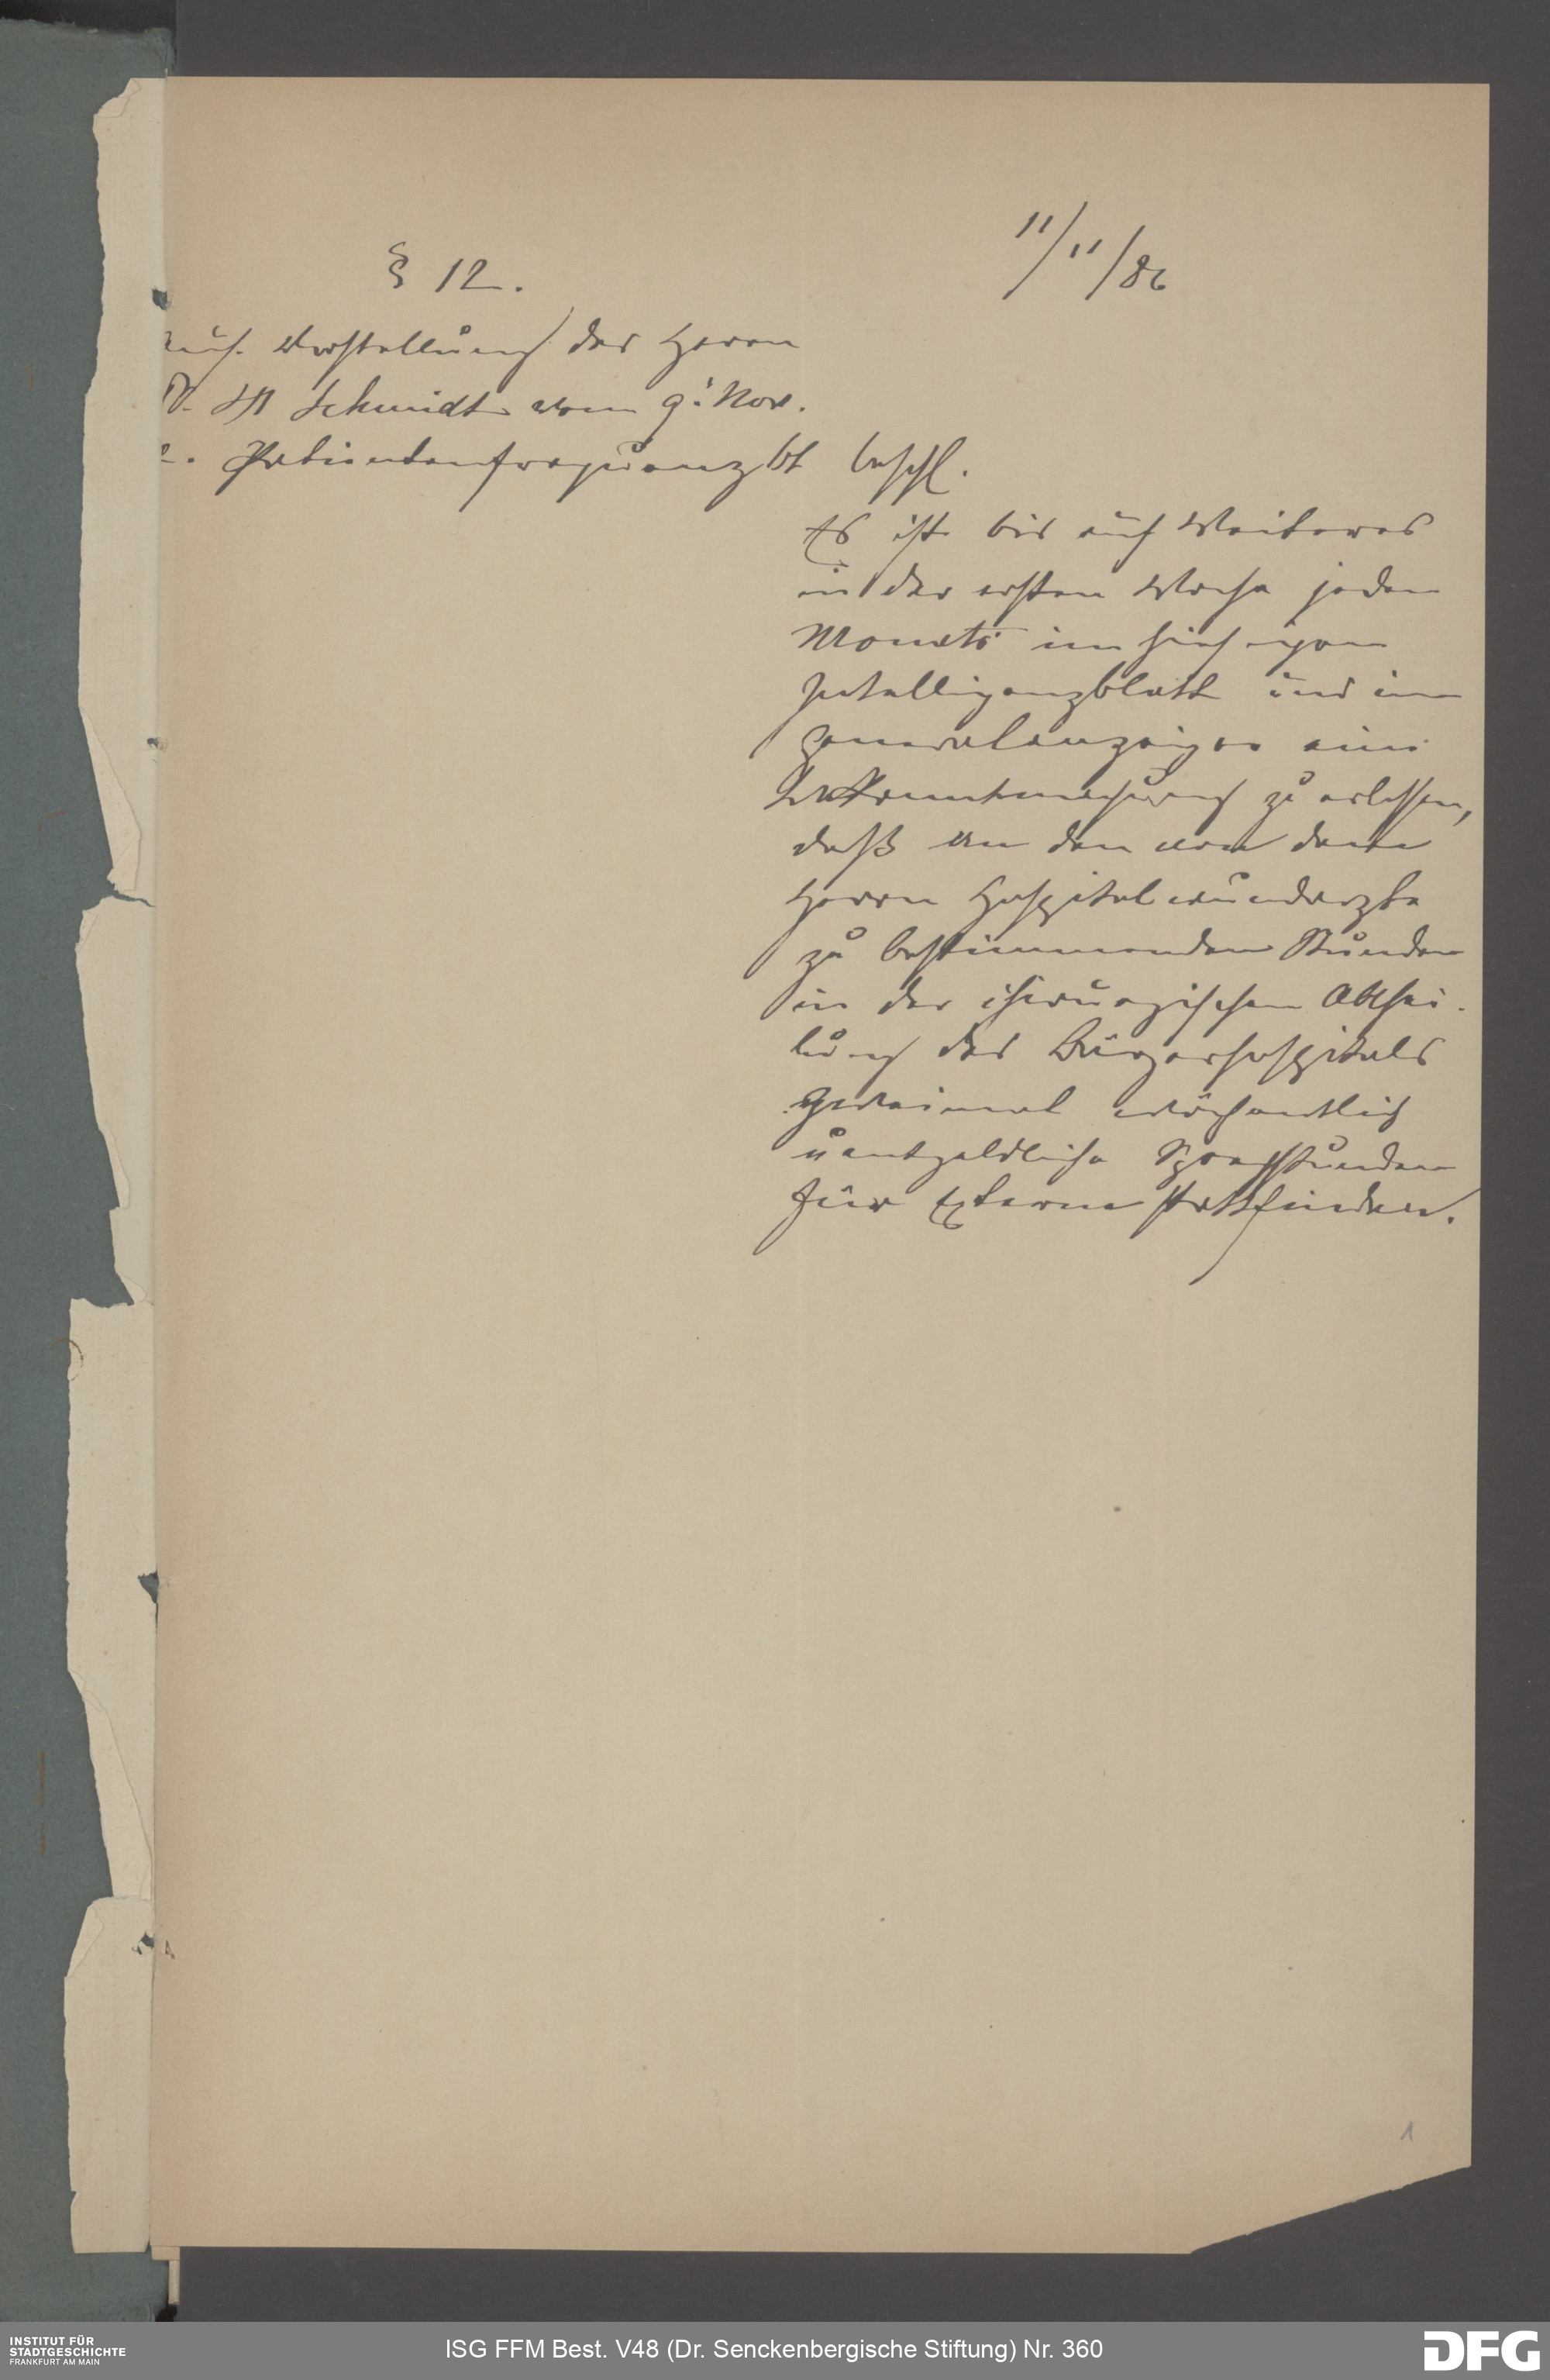 11/11/86
§ 12.
auf Vorstellung des Herrn
Dr. M Schmidt vom 9: Nov.
Patientenfrequenz bt beschl.
Es ist bis auf Weiteres
in der ersten Woche jeden
Monats im hiesigen
Intelligenzblatt und im
Generalanzeiger eine
Bekanntmachung zu erlassen,
daß an den von dem
Herrn Hospitalwundarzte
zu bestimmenden Stunden
in der chirurgischen Abthei-
lung des Bürgerhospitals
zweimal wöchentlich
unentgeldliche Sprechstunden
für Externe stattfinden.
1
INSTITUT FÜR
STADTGESCHICHTE
FRANKFURT AM MAIN
ISG FFM Best. V48 (Dr. Senckenbergische Stiftung) Nr. 360
DFG